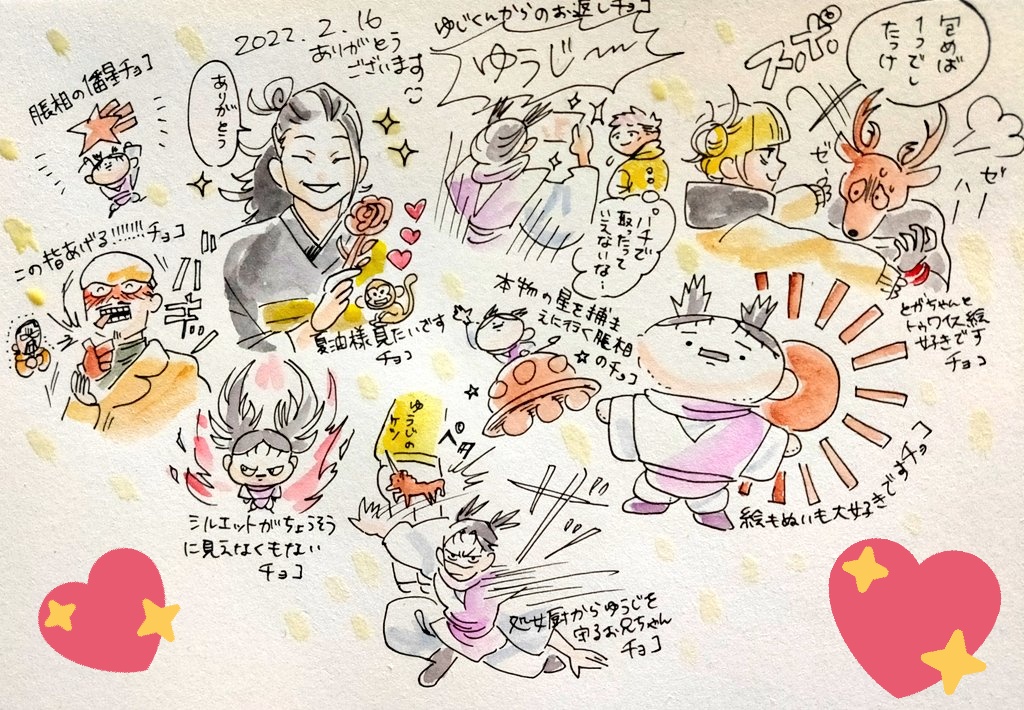 2022.2.16
ありがとう
ございます
脹相の幡星チョコ
ありがとう
ゆじくんからのお返しチョコ
ゆうじ〜〜
スポ。
包めば
1つでし
たっけ
ゼー
ハー
ゼ
ハチで
取だって
いえないな…
この指あげる!!!!!!!チョコ
バギッ
夏油様見たいです
チョコ
本物の星を捕ま
えに行く脹相
のチョコ
とがちゃんと
トゥワイス絵
好きです
チョコ
シルエットがちょうそう
に見えなくもない
チョコ
ゆうじの
ケツ
ペタ
絵もぬいも大好きですチョコ
処女厨からゆうじを
守るお兄ちゃん
チョコ